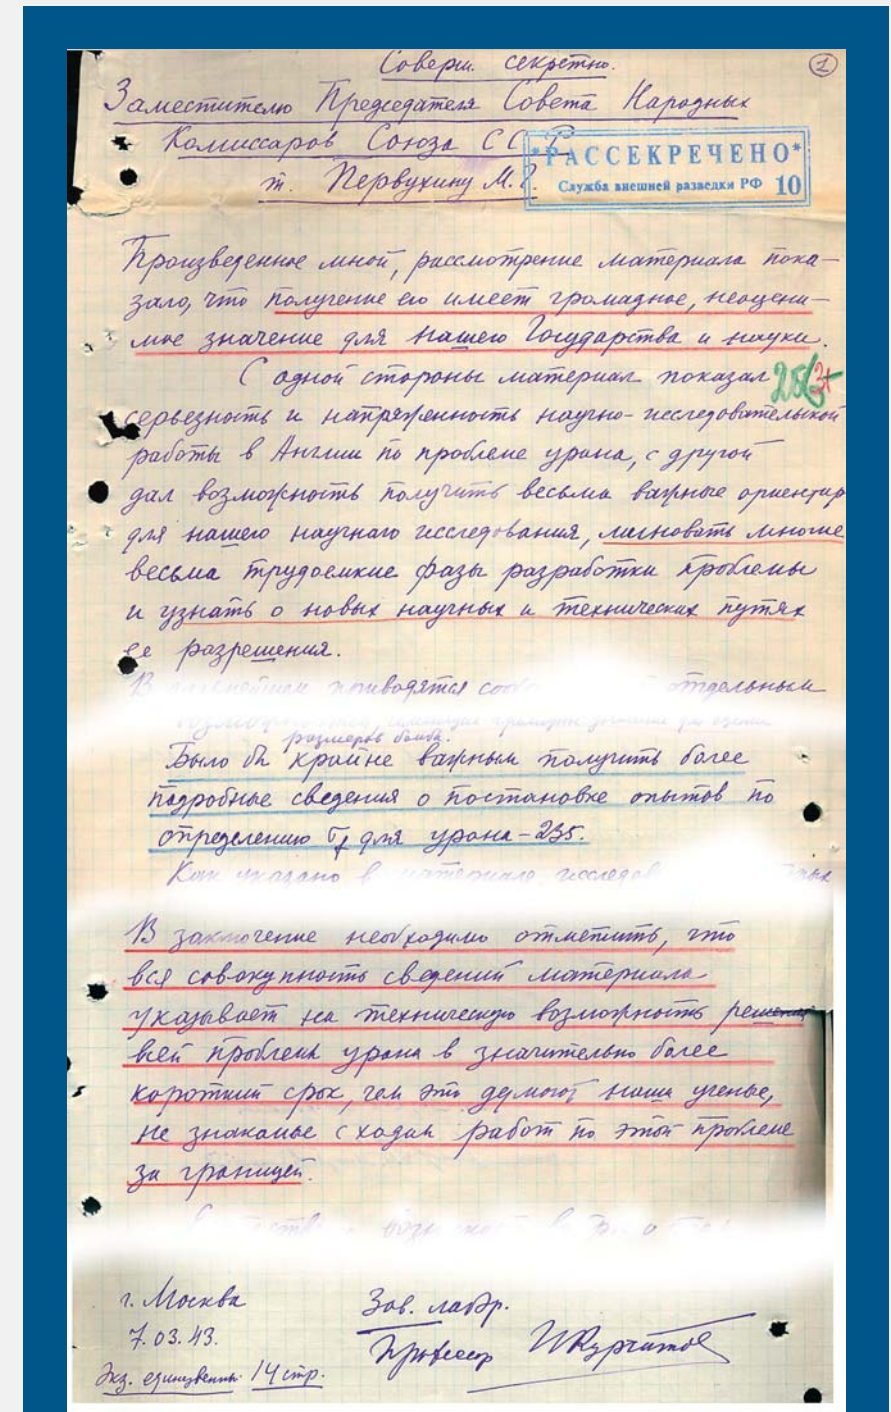 Соверш. секретно.
1
Заместителю Председателя Совета Народных
Комиссаров Союза ССР
т. Первухину М.Г.
*РАССЕКРЕЧЕНО*
Служба внешней разведки РФ 10
Произведенное мной, рассмотрение материала пока-
зало, что получение его имеет громадное, неоцени-
мое значение для нашего Государства и науки.
С одной стороны материал показал
серьезность и напряженность научно-исследовательской
работы в Англии по проблеме урана, с другой
дал возможность получить весьма важные ориентир
для нашего научного исследования, миновать многие
весьма трудоемкие фазы разработки проблемы
и узнать о новых научных и технических путях
ее разрешения.
В дальнейшем приводятся отдельным
размеров бомбы.
Было бы крайне важным получить более
подробные сведения о постановке опытов по
определению σf для урана-235.
Как указано в материале
В заключение необходимо отметить, что
вся совокупность сведений материала
указывает на техническую возможность решения
всей проблемы урана в значительно более
короткий срок, чем это думают наши ученые,
не знакомые с ходом работ по этой проблеме
за границей.
г. Москва
7.03.43.
Экз. единственн. 14 стр.
Зав. лабор.
Профессор И Курчатов